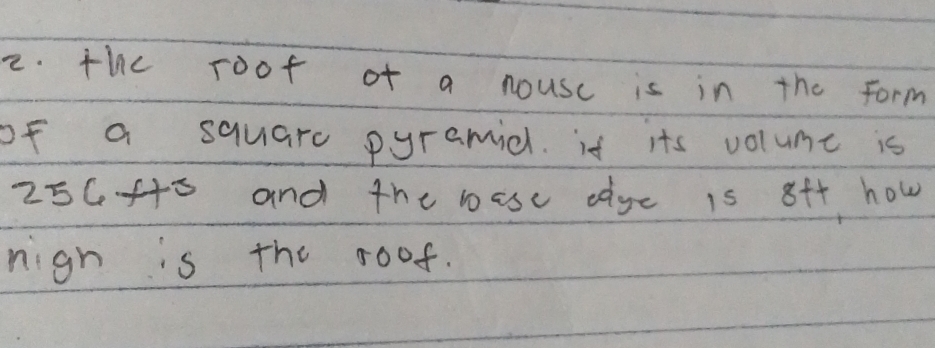 2. the roof of a house is in the form
of a square pyramid. if its volume is
256 ft3 and the base edge is 8ft, how
high is the roof.